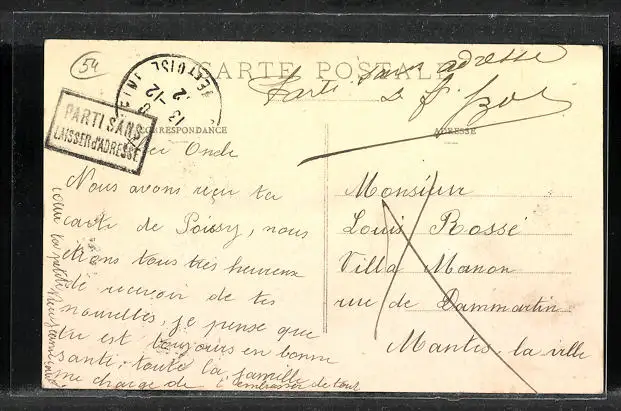 54
CARTE POSTALE
Parti sans adresse
13-12
PARTI SANS
LAISSER d'ADRESSE
CORRESPONDANCE
ADRESSE
Oncle
Nous avons reçu ta
carte de Poissy, nous
étions tous très heureux
de recevoir de tes
nouvelles, je pense que
tu est toujours en bonne
santé, toute la famille
me charge de t'embrasser de tout
Monsieur
Louis Rossé
Villa Manon
rue de Dammartin
Mantes la ville